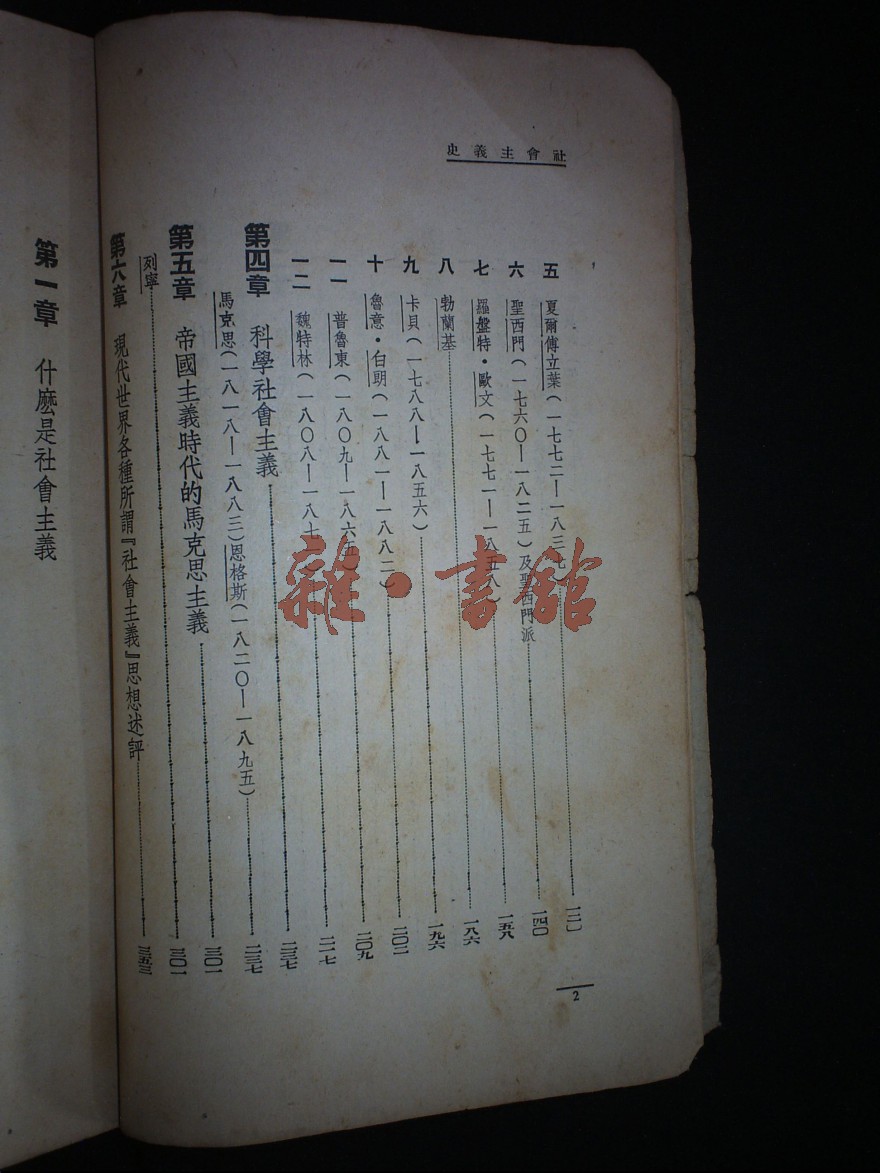 社會主義史
五 夏爾傅立葉(一七七二—一八三七)……一二一
六 聖西門(一七六〇—一八二五)及聖西門派……一四〇
七 羅盤特・歐文(一七七一—一八五八)……一五八
八 勃蘭基……一八六
九 卡貝(一七八八—一八五六)……一九六
十 魯意・白朗(一八八一—一八八二)……二〇二
一一 普魯東(一八〇九—一八六五)……二〇九
一二 魏特林(一八〇八—一八七一)……二一七
第四章 科學社會主義……二三七
馬克思(一八一八—一八八三)恩格斯(一八二〇—一八九五)……二三七
第五章 帝國主義時代的馬克思主義……三〇一
列寧……三〇一
第六章 現代世界各種所謂『社會主義』思想述評……三五三
2
第一章 什麽是社會主義
雜・書館